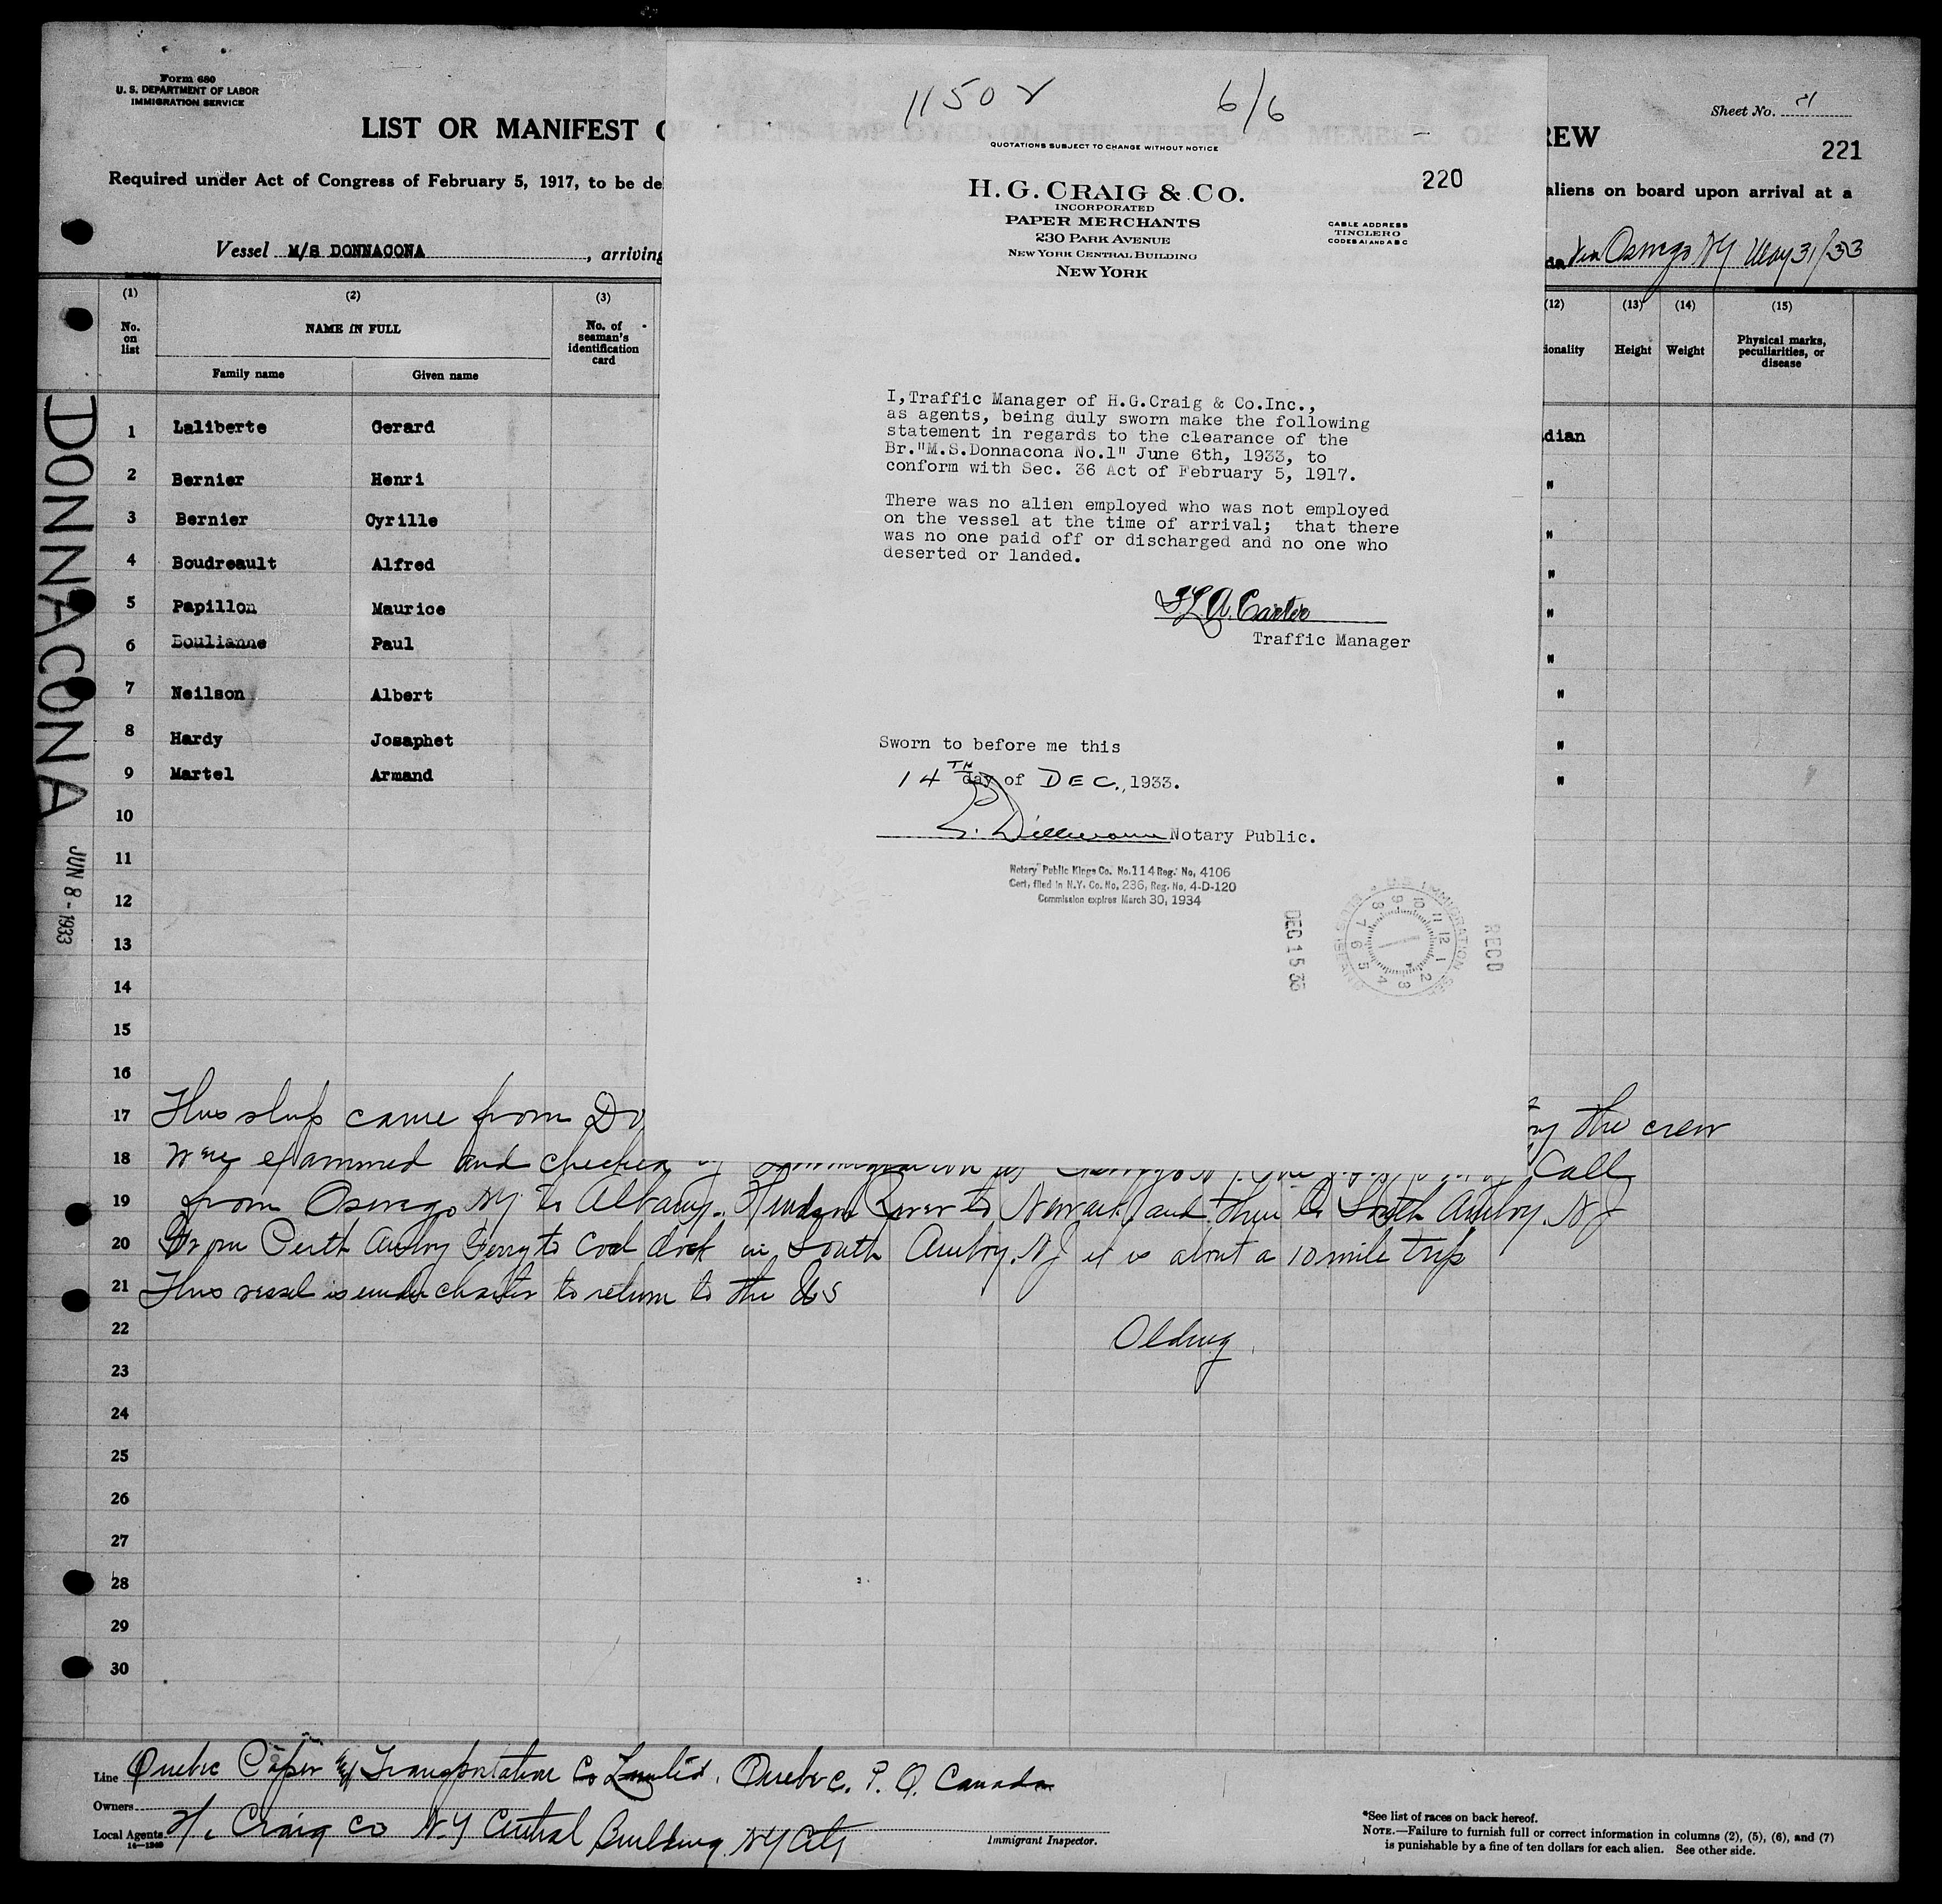 Form 680
U. S. DEPARTMENT OF LABOR
IMMIGRATION SERVICE
Sheet No.
LIST OR MANIFEST OF ALIENS EMPLOYED ON THE VESSEL AS MEMBERS OF CREW
221
Required under Act of Congress of February 5, 1917, to be de
aliens on board upon arrival at a
Vessel M/S DONNACONA, arriving
da via Oswego NY May 31/33
(1) (2) (3) (12) (13) (14) (15)
No. on list
NAME IN FULL
Family name Given name
No. of seaman's identification card
ionality
Height
Weight
Physical marks, peculiarities, or disease
1 Laliberte Gerard dian
2 Bernier Henri "
3 Bernier Cyrille "
4 Boudreault Alfred "
5 Papillon Maurice "
6 Boulianne Paul "
7 Neilson Albert "
8 Hardy Josaphet "
9 Martel Armand "
10
11
12
13
14
15
16
17 This ship came from Do the crew
18 were examined and checked by Immigration at Oswego N.Y. Call
19 from Oswego NY to Albany. Hudson River to Newark and then to South Amboy. NJ
20 From Perth Amboy Ferry to coal dock in South Amboy. NJ it is about a 10 mile trip
21 This vessel is under charter to return to the US
22
23
24
25
26
27
28
29
30
DONNACONA
JUN 8 - 1933
11502 6/6
QUOTATIONS SUBJECT TO CHANGE WITHOUT NOTICE
220
H. G. CRAIG & CO.
INCORPORATED
PAPER MERCHANTS
230 PARK AVENUE
NEW YORK CENTRAL BUILDING
NEW YORK
CABLE ADDRESS
TINCLERO
CODES A1 AND A B C
I,Traffic Manager of H.G.Craig & Co.Inc.,
as agents, being duly sworn make the following
statement in regards to the clearance of the
Br."M.S.Donnacona No.1" June 6th, 1933, to
conform with Sec. 36 Act of February 5, 1917.
There was no alien employed who was not employed
on the vessel at the time of arrival; that there
was no one paid off or discharged and no one who
deserted or landed.
Carter
Traffic Manager
Sworn to before me this
14TH day of DEC., 1933.
Notary Public.
Notary Public Kings Co. No.114 Reg. No. 4106
Cert. filed in N.Y. Co. No. 236, Reg. No. 4-D-120
Commission expires March 30, 1934
DEC 15 33
RECD
1 2 3 4 5 6 7 8 9 10 11 12
Line Quebec Paper Transportation Co Limited, Quebec. P. Q. Canada
Owners
Local Agents Craig Co N.Y Central Building NY City
Immigrant Inspector.
*See list of races on back hereof.
NOTE.—Failure to furnish full or correct information in columns (2), (5), (6), and (7)
is punishable by a fine of ten dollars for each alien. See other side.